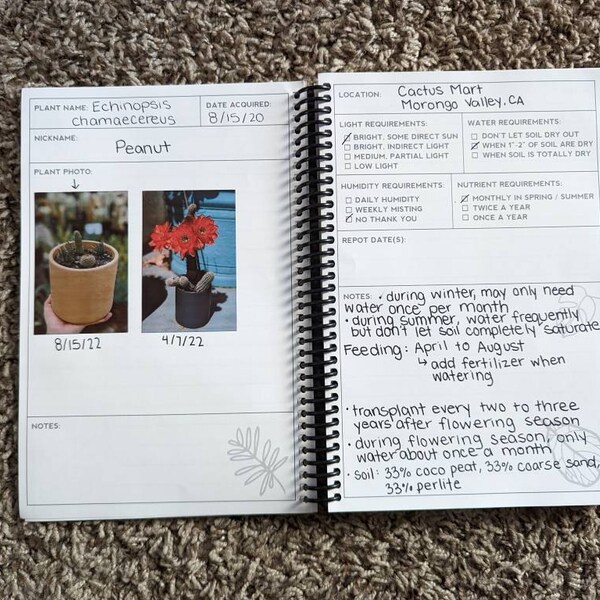 PLANT NAME: Echinopsis
chamaecereus
DATE ACQUIRED:
8/15/20
NICKNAME:
Peanut
PLANT PHOTO:
8/15/22
4/7/22
NOTES:
LOCATION: Cactus Mart
Morongo Valley, CA
LIGHT REQUIREMENTS:
BRIGHT, SOME DIRECT SUN
BRIGHT, INDIRECT LIGHT
MEDIUM, PARTIAL LIGHT
LOW LIGHT
WATER REQUIREMENTS:
DON'T LET SOIL DRY OUT
WHEN 1"-2" OF SOIL ARE DRY
WHEN SOIL IS TOTALLY DRY
HUMIDITY REQUIREMENTS:
DAILY HUMIDITY
WEEKLY MISTING
NO THANK YOU
NUTRIENT REQUIREMENTS:
MONTHLY IN SPRING / SUMMER
TWICE A YEAR
ONCE A YEAR
REPOT DATE(S):
NOTES: • during winter, may only need
water once per month
• during summer, water frequently
but don't let soil completely saturate
Feeding: April to August
↳ add fertilizer when
watering
• transplant every two to three
years after flowering season
• during flowering season, only
water about once a month
• soil: 33% coco peat, 33% coarse sand,
33% perlite